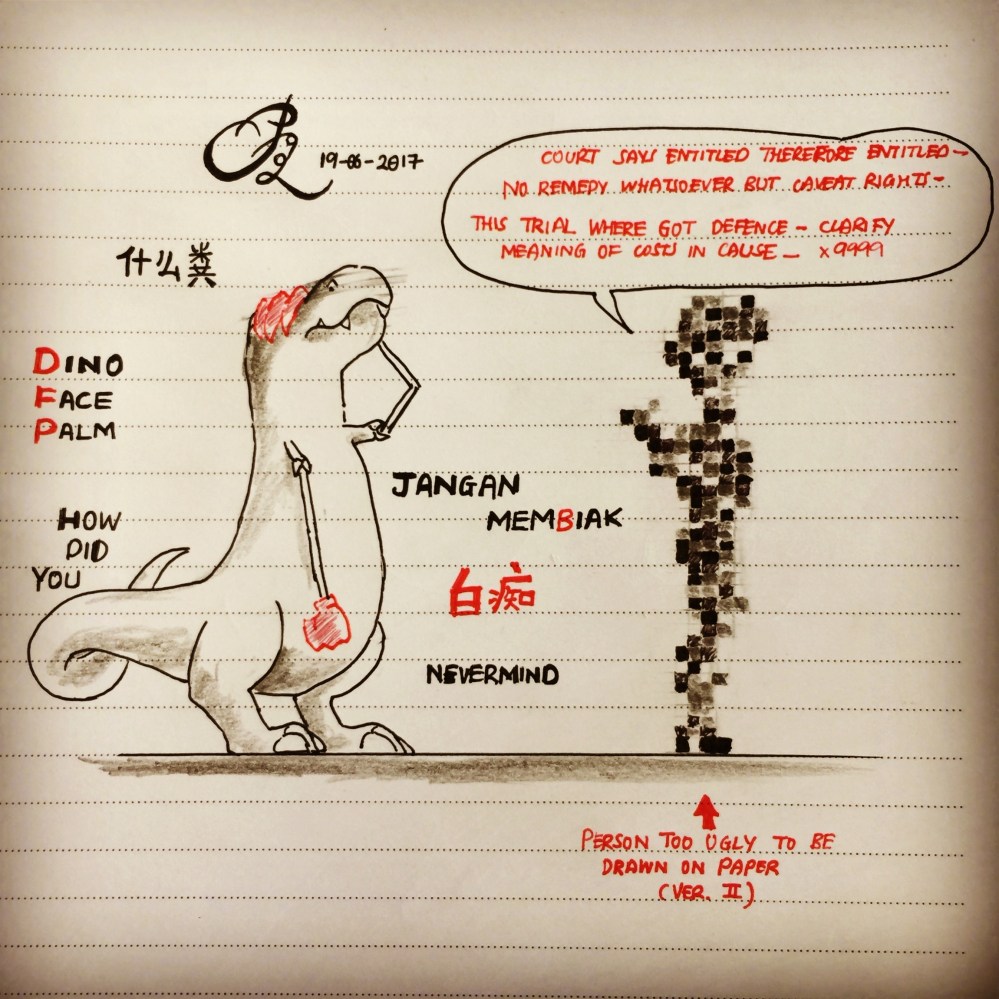 19-06-2017
COURT SAYS ENTITLED THEREFORE ENTITLED—
NO REMEDY WHATSOEVER BUT CAVEAT RIGHTS—
THIS TRIAL WHERE GOT DEFENCE — CLARIFY
MEANING OF COSTS IN CAUSE — x9999
什么粪
DINO
FACE
PALM
HOW
DID
YOU
JANGAN
MEMBIAK
白痴
NEVERMIND
PERSON TOO UGLY TO BE
DRAWN ON PAPER
(VER. II)